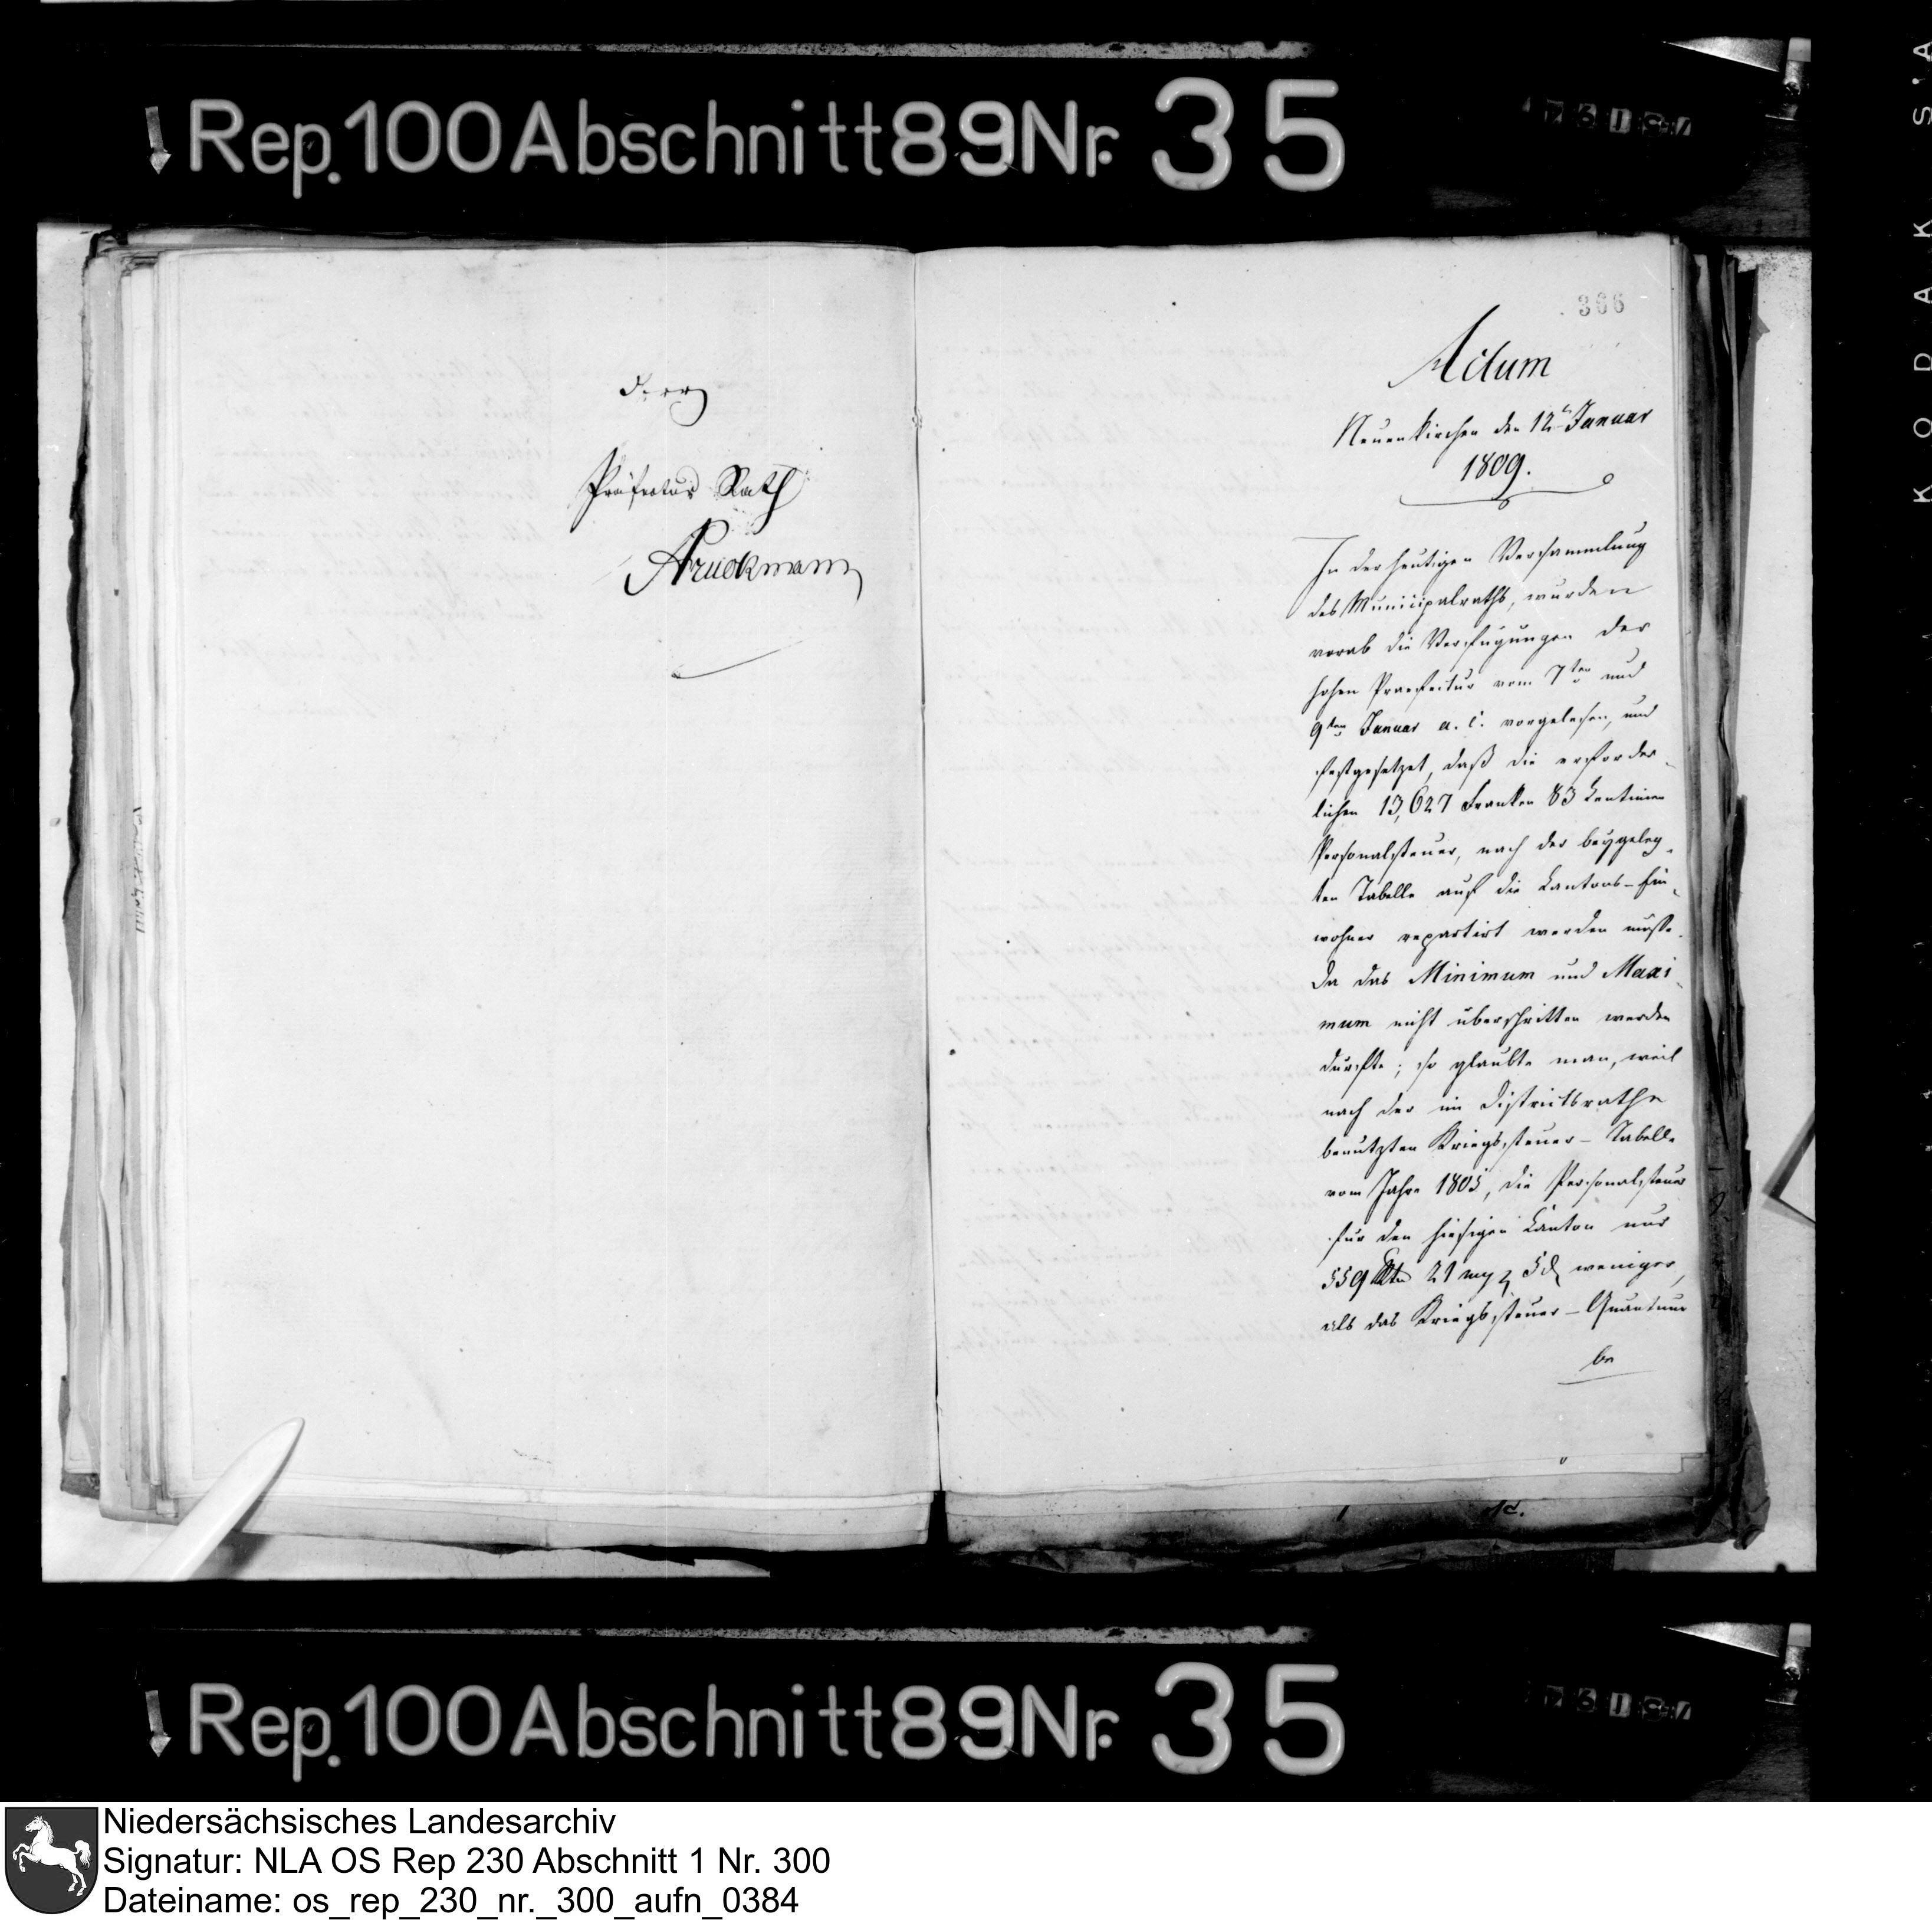 Rep. 100 Abschnitt 89 Nr. 35
Präfectur Rath
Struckmann
366
Actum
Neuenkirchen den 12t Januar
1809.
In der heutigen Versammlung
des Municipalraths, wurden
vorab die Verfügungen der
hohen Praefectur vom 7ten und
9ten Januar a. c. vorgelesen, und
festgesetzet, daß die erforder-
lichen 13,627 Franken 83 Centimen
Personalsteuer, nach der beygeleg-
ten Tabelle auf die Cantons-Ein-
wohner repartirt werden müßte.
Da das Minimum und Maxi-
mum nicht überschritten werden
durfte; so glaubte man, weil
nach der im Districtsrathe
benutzten Kriegssteuer-Tabelle
vom Jahre 1805, die Personalsteuer
für den hiesigen Canton nur
559 Rtlr 21 mgr 5 d weniger,
als das Kriegssteuer-Quantum
be
Rep. 100 Abschnitt 89 Nr. 35
KODAK
Niedersächsisches Landesarchiv
Signatur: NLA OS Rep 230 Abschnitt 1 Nr. 300
Dateiname: os_rep_230_nr._300_aufn_0384